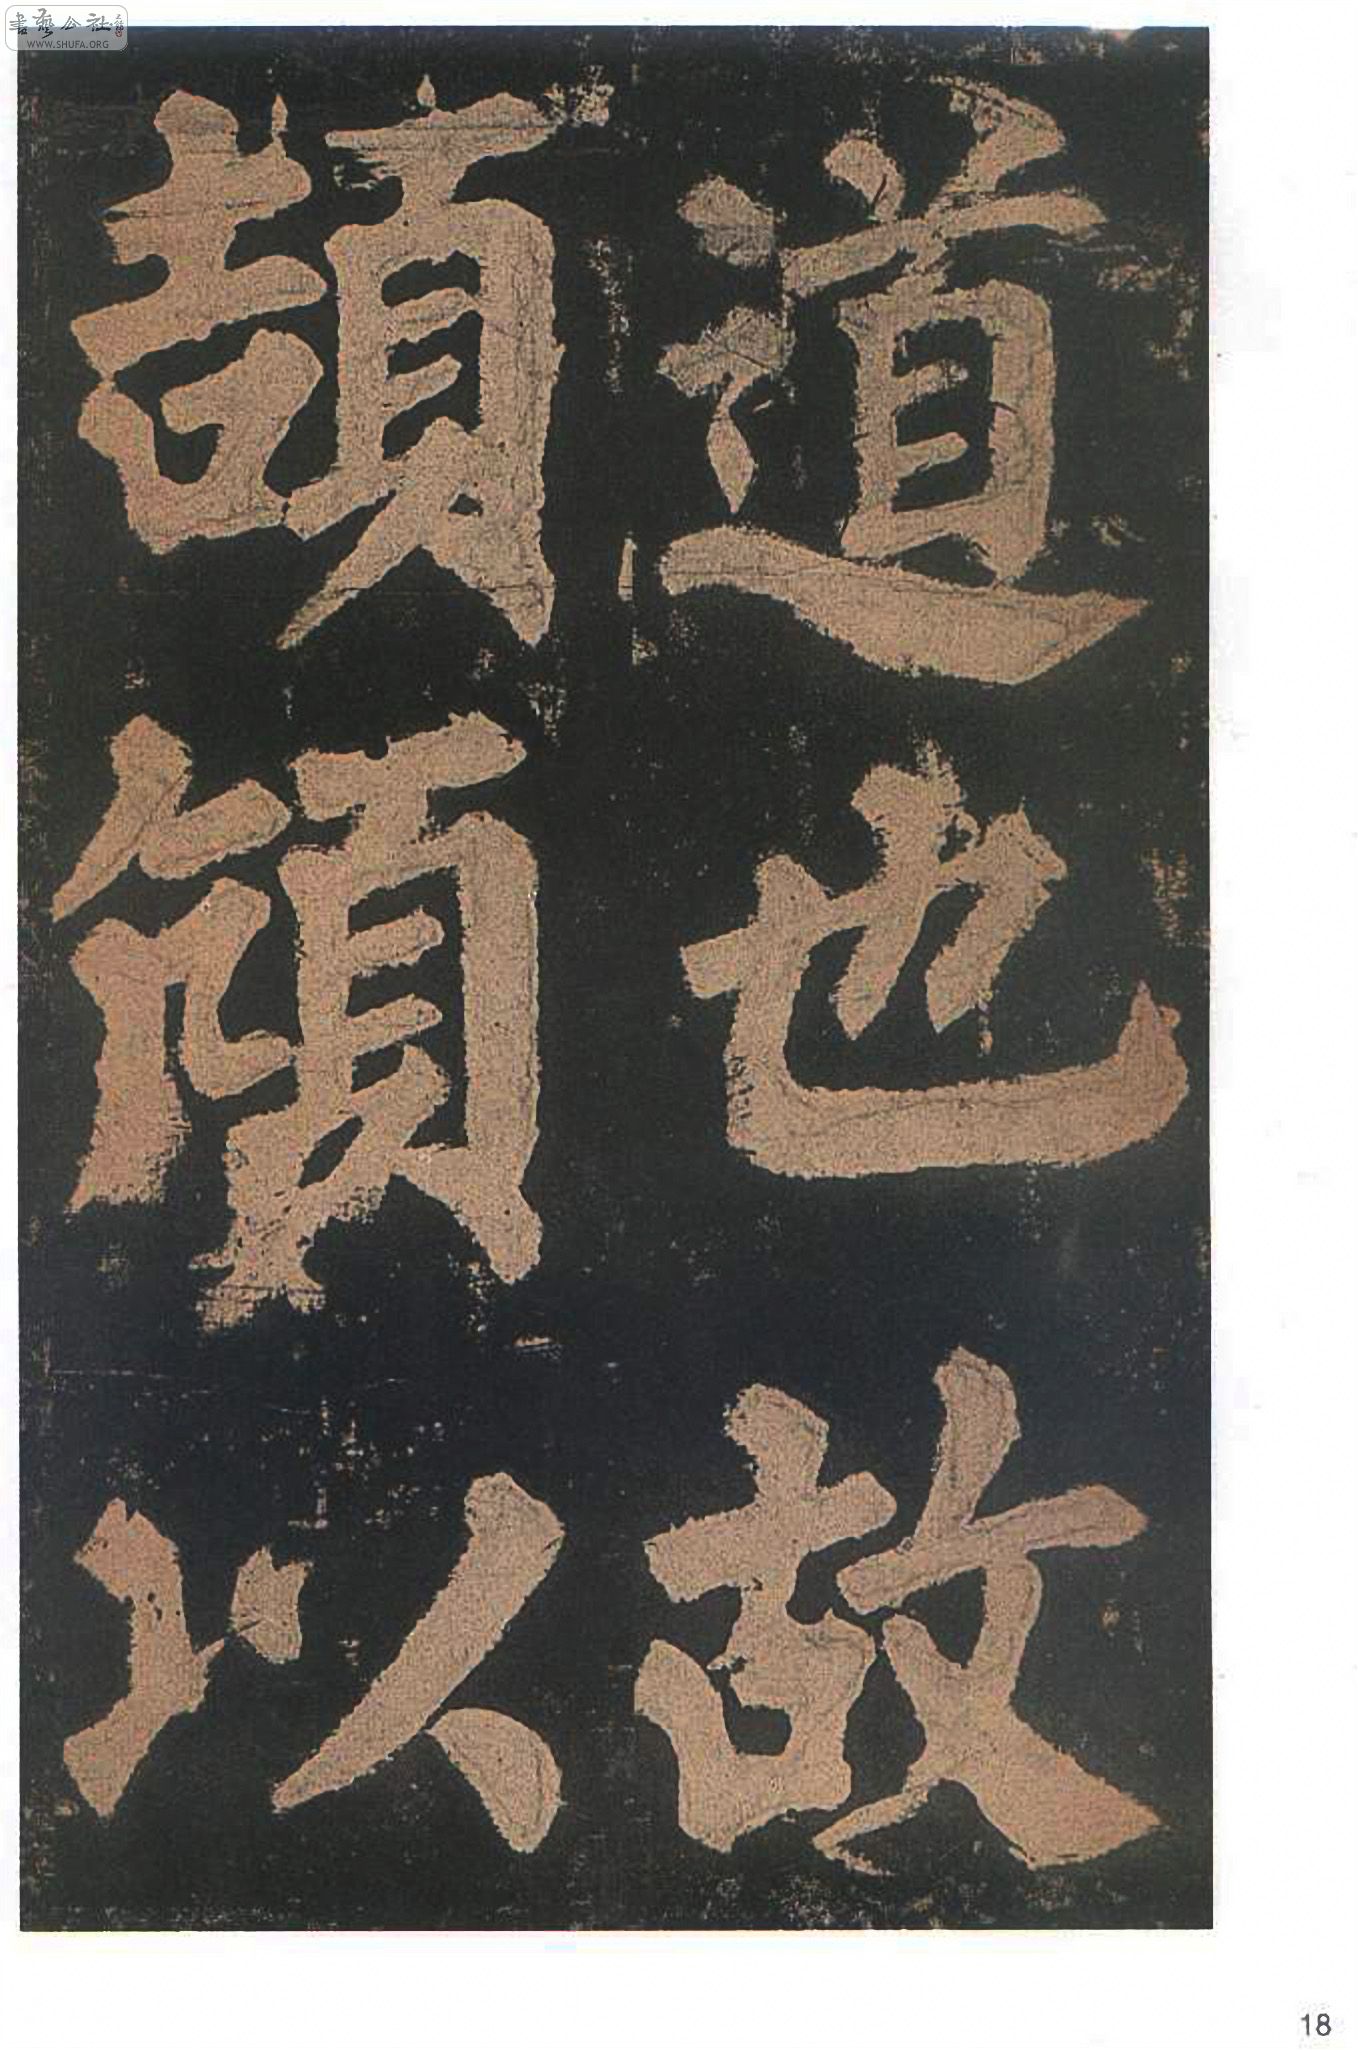 書藝公社
WWW.SHUFA.ORG
道也故
頡頏以
18